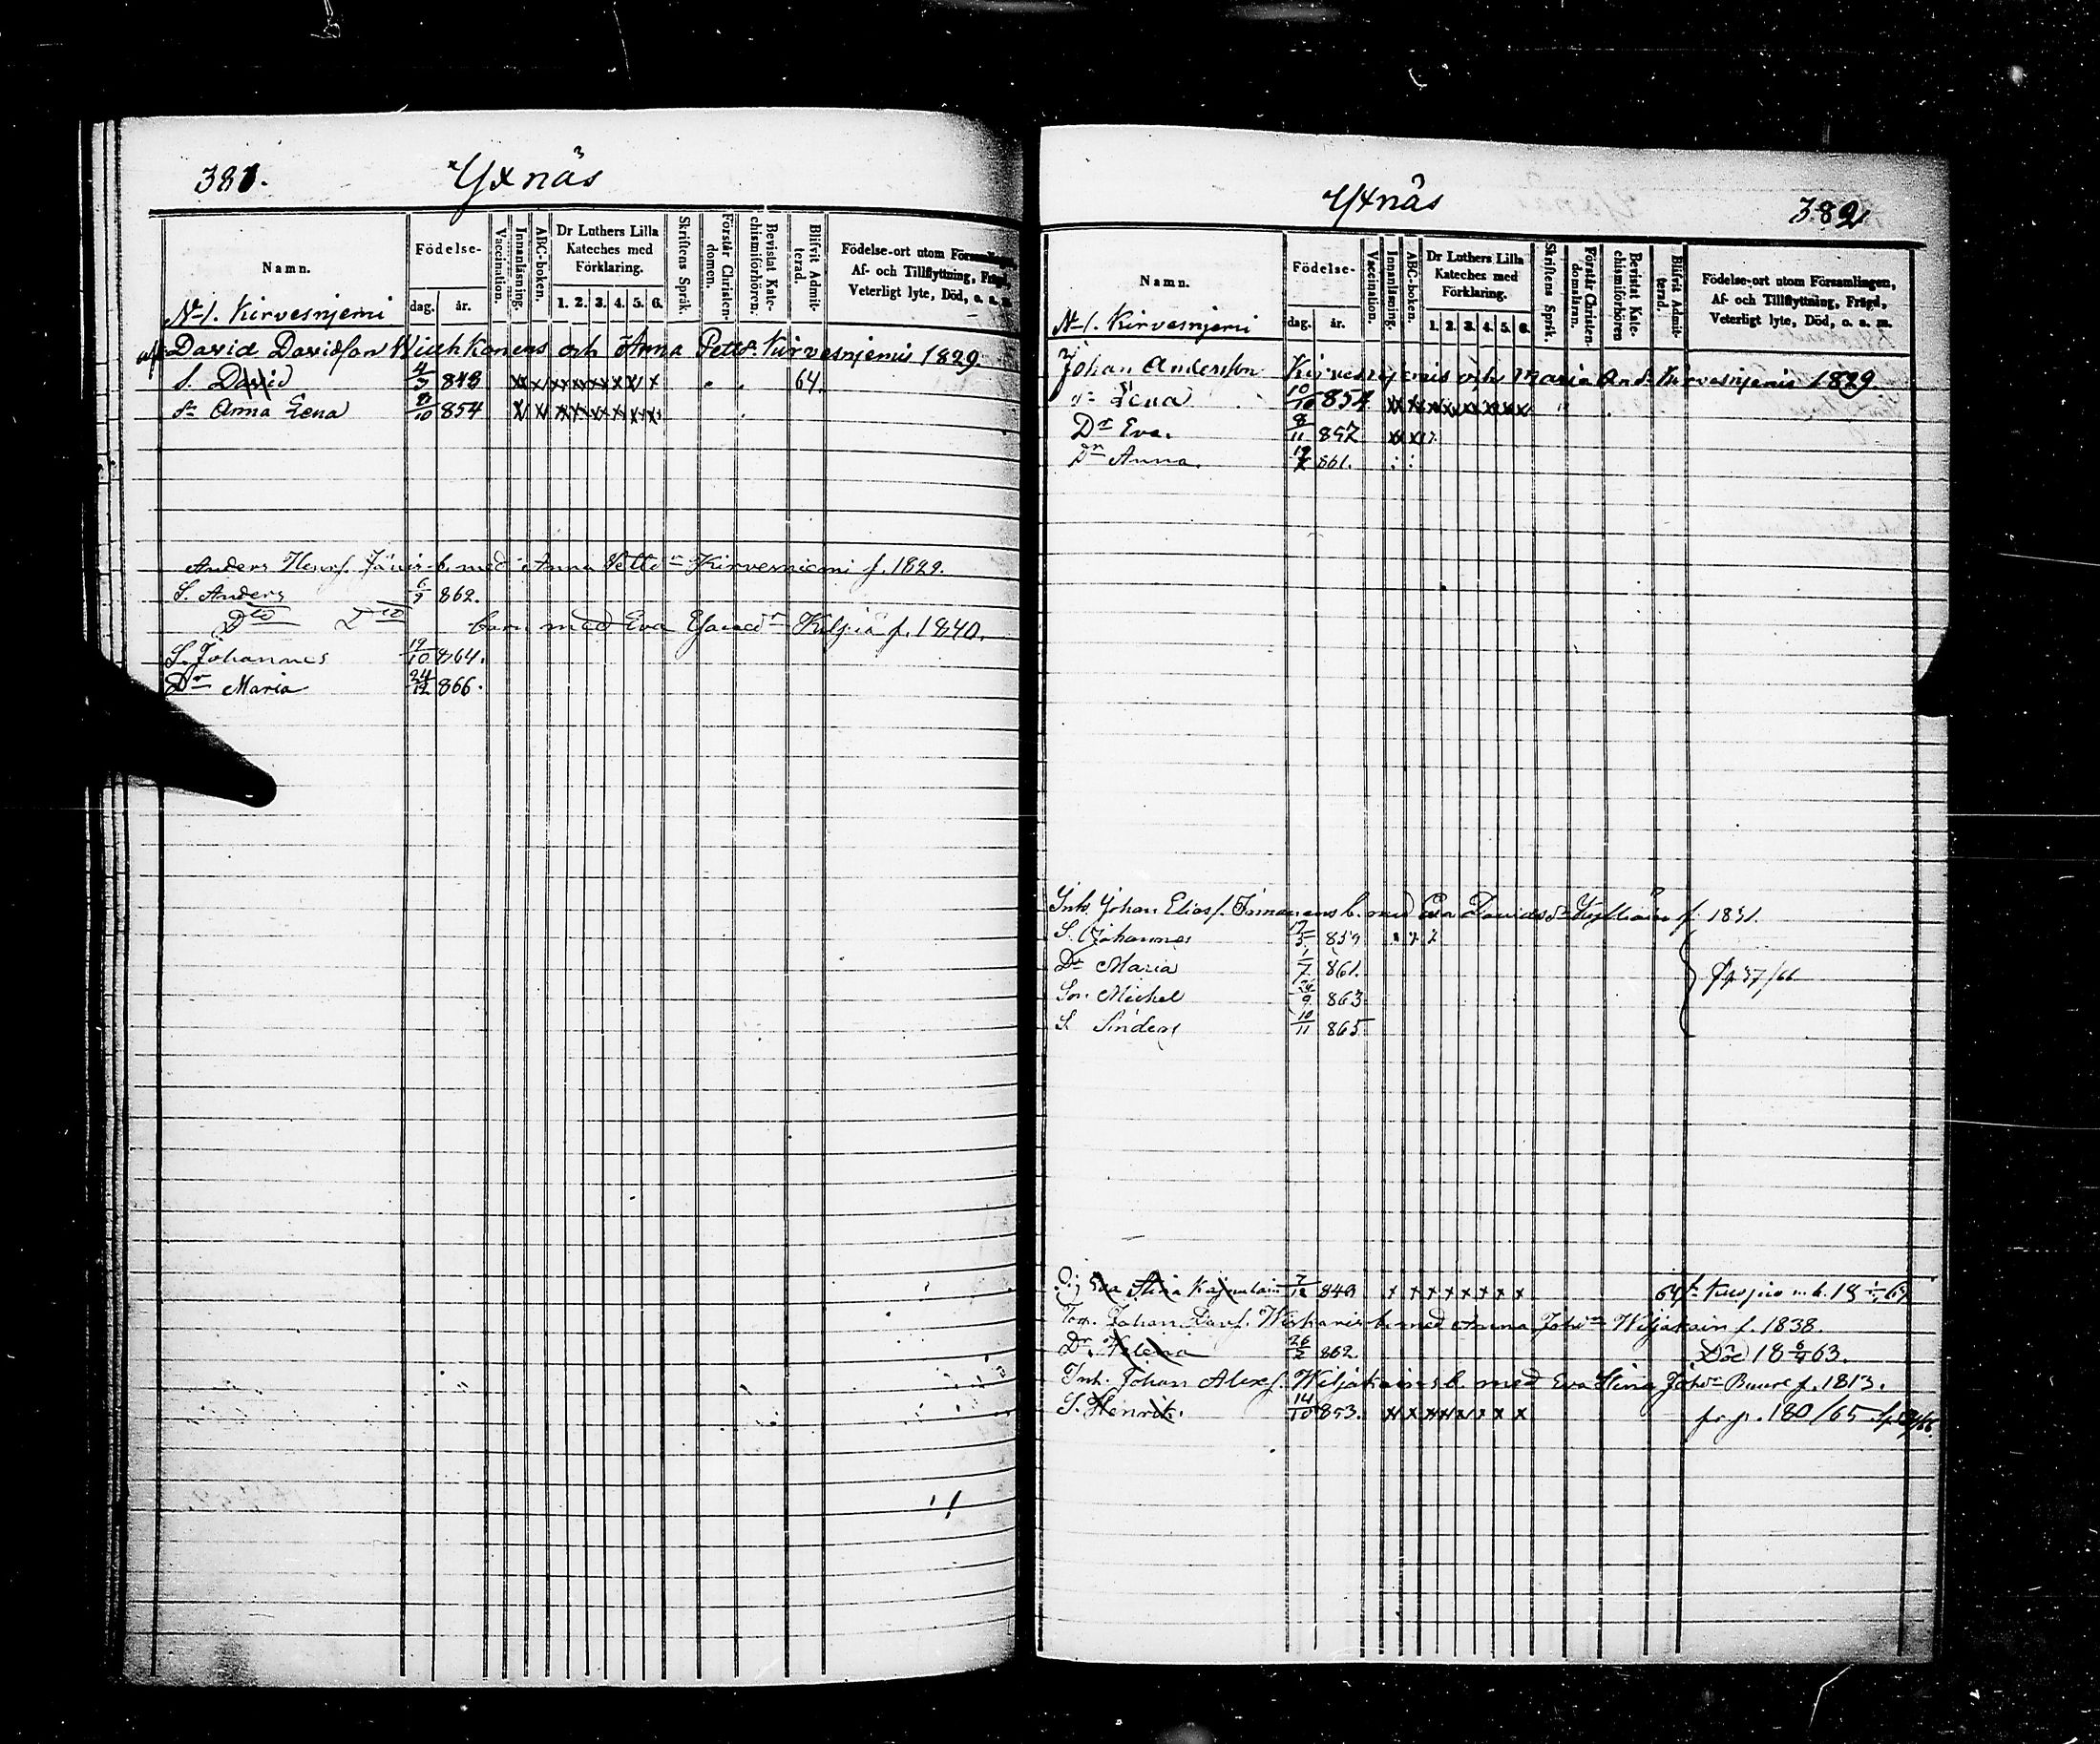 381.
Yxnäs
Namn.
Födelse-
dag.
år.
Vaccination.
Innanläsning.
ABC-boken.
Dr Luthers Lilla
Kateches med
Förklaring.
1. 2. 3. 4. 5. 6.
Skriftens Språk.
Förstår Christen-
domen.
Bevistat Kate-
chismiförhören.
Blifvit Admit-
terad.
Födelse-ort utom Församlingen,
Af- och Tillflyttning, Frägd,
Veterligt lyte, Död, o. a. m.
N-1. Kirvesnjemi
David Davidson och Anna Petts. Kirvesnjemis 1829.
S. David 4/3 848 x x x x x x x x x 64.
dr Anna Lena 8/10 854 x x x x x x x x
Anders Henrs. b. med Anna Petts Kirvesniemi f. 1829.
S. Anders 6/7 862.
Dto Dto barn med Eva f. 1840.
S. Johannes 19/10 864.
Dr Maria 24/12 866.
Yxnäs
382
Namn.
Födelse-
dag.
år.
Vaccination.
Innanläsning.
ABC-boken.
Dr Luthers Lilla
Kateches med
Förklaring.
1. 2. 3. 4. 5. 6.
Skriftens Språk.
Förstår Christen-
domslaran.
Bevistat Kate-
chismiförhören
Blifvit Admit-
terad.
Födelse-ort utom Församlingen,
Af- och Tillflyttning, Frägd,
Veterligt lyte, Död, o. a. m.
N-1. Kirvesnjemi
Johan Andersson Kirvesnjemis och Maria And. Kirvesnjemis 1829.
dr Lena 10/10 854 x x x x x x x x
Dr Eva. 8/11 857 x x
Dr Anna. 861.
Inh. Johan Elias. b. med Eva Davidsdr f. 1831.
S. Johannes 859
Dr Maria 1/7 861.
Son Michel 26/9 863
S. Anders 10/11 865
Eva Stina 7/12 849 x x x x x x x x 64
Johan Davs. b. med Anna Johsdr Wiljakain f. 1838.
Dr. Helena 26/2 862. Död 18 63.
Inh. Johan Alexs. Wiljakains b. med Eva Stina Johsdr f. 1813.
S. Henrik. 14/10 853. x x x x x x x x fr. p. 180/65.